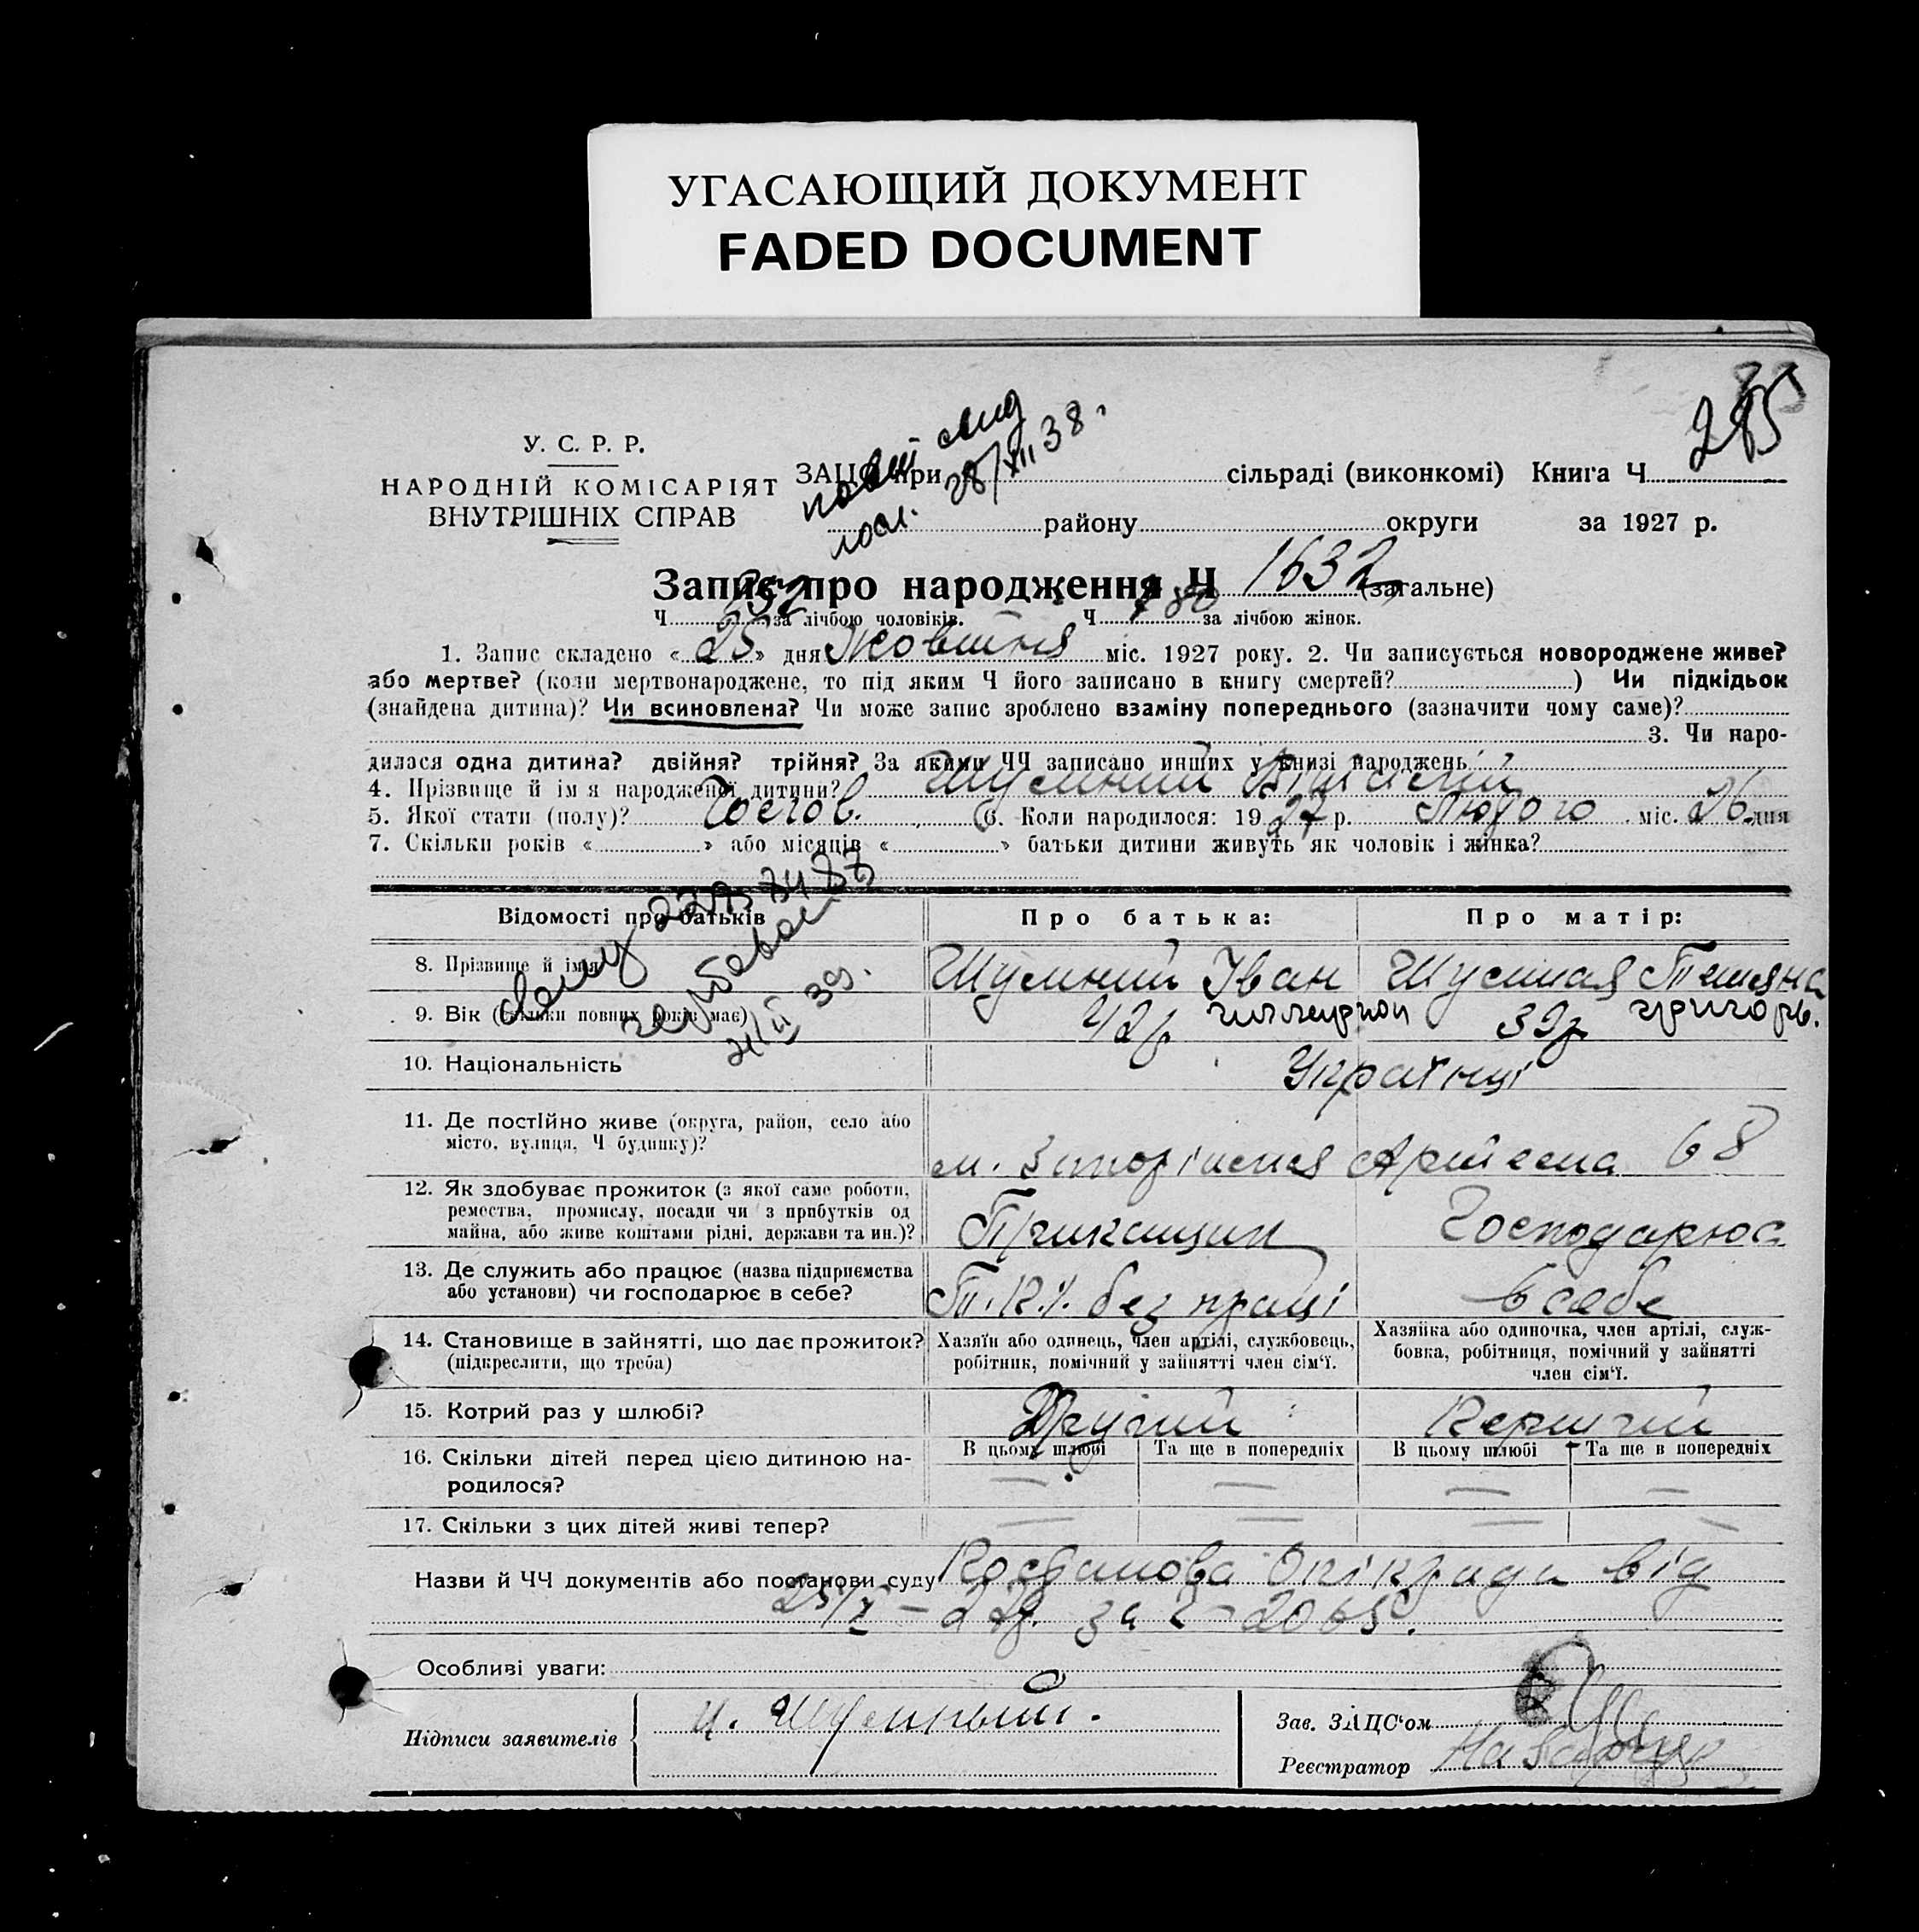 УГАСАЮЩИЙ ДОКУМЕНТ
FADED DOCUMENT
285
У. С. Р. Р.
НАРОДНІЙ КОМІСАРІЯТ
ВНУТРІШНІХ СПРАВ
28/XII 38.
ЗАЦС при сільраді (виконкомі) Книга Ч
району округи за 1927 р.
Запис про народження Ч 1632 (загальне)
Ч 852 за лічбою чоловіків. Ч 780 за лічбою жінок.
1. Запис складено « 25 » дня Жовтня міс. 1927 року. 2. Чи записується новороджене живе?
або мертве? (коли мертвонароджене, то під яким Ч його записано в книгу смертей? ) Чи підкідьок
(знайдена дитина)? Чи всиновлена? Чи може запис зроблено взаміну попереднього (зазначити чому саме)?
3. Чи наро-
дилася одна дитина? двійня? трійня? За якими ЧЧ записано инших у книзі народжень
4. Прізвище й ім'я народженої дитини? Шумний
5. Якої стати (полу)? Чолов. 6. Коли народилося: 1927 р. Лютого міс. 26 дня
7. Скільки років « » або місяців « » батьки дитини живуть як чоловік і жінка?
Відомості про батьків Про батька: Про матір:
8. Прізвище й ім'я Шумний Іван Шумная Татяна
9. Вік (скільки повних років має) 42 р 39 р григорь.
39.
10. Національність Українці
11. Де постійно живе (округа, район, село або
місто, вулиця, Ч будинку)? м. Запоріжжя Артема 68
12. Як здобуває прожиток (з якої саме роботи,
ремества, промислу, посади чи з прибутків од
майна, або живе коштами рідні, держави та ин.)? Прикащик Господарює
13. Де служить або працює (назва підприємства
або установи) чи господарює в себе? без праці в себе
14. Становище в зайнятті, що дає прожиток?
(підкреслити, що треба)
Хазяїн або одинець, член артілі, службовець,
робітник, помічний у зайнятті член сім'ї.
Хазяйка або одиночка, член артілі, служ-
бовка, робітниця, помічний у зайнятті
член сім'ї.
15. Котрий раз у шлюбі? Другий Перший
В цьому шлюбі Та ще в попередніх В цьому шлюбі Та ще в попередніх
16. Скільки дітей перед цією дитиною на-
родилося? — — — —
17. Скільки з цих дітей живі тепер? — — — —
Назви й ЧЧ документів або постанови суду Постанова Опікради від
25/X – 27р. за Ч – 2065.
Особливі уваги:
Підписи заявителів И. Шумный.
Зав. ЗАЦС'ом
Реєстратор